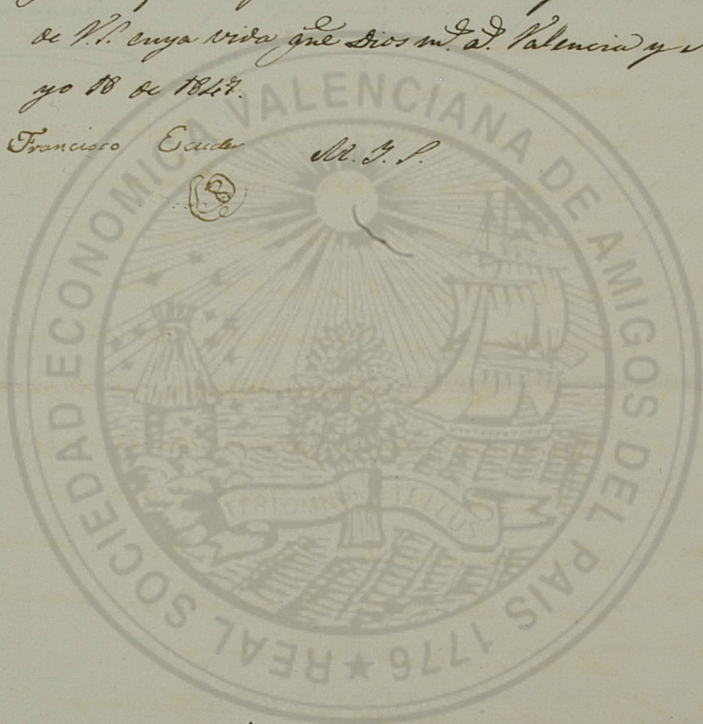 de V.S. cuya vida gue Dios ms. as. Valencia y
yo 18 de 1847.
Francisco Escuder M. I. S.
REAL SOCIEDAD ECONOMICA VALENCIANA DE AMIGOS DEL PAIS 1776 ★
FERT OMNIA TELLUS